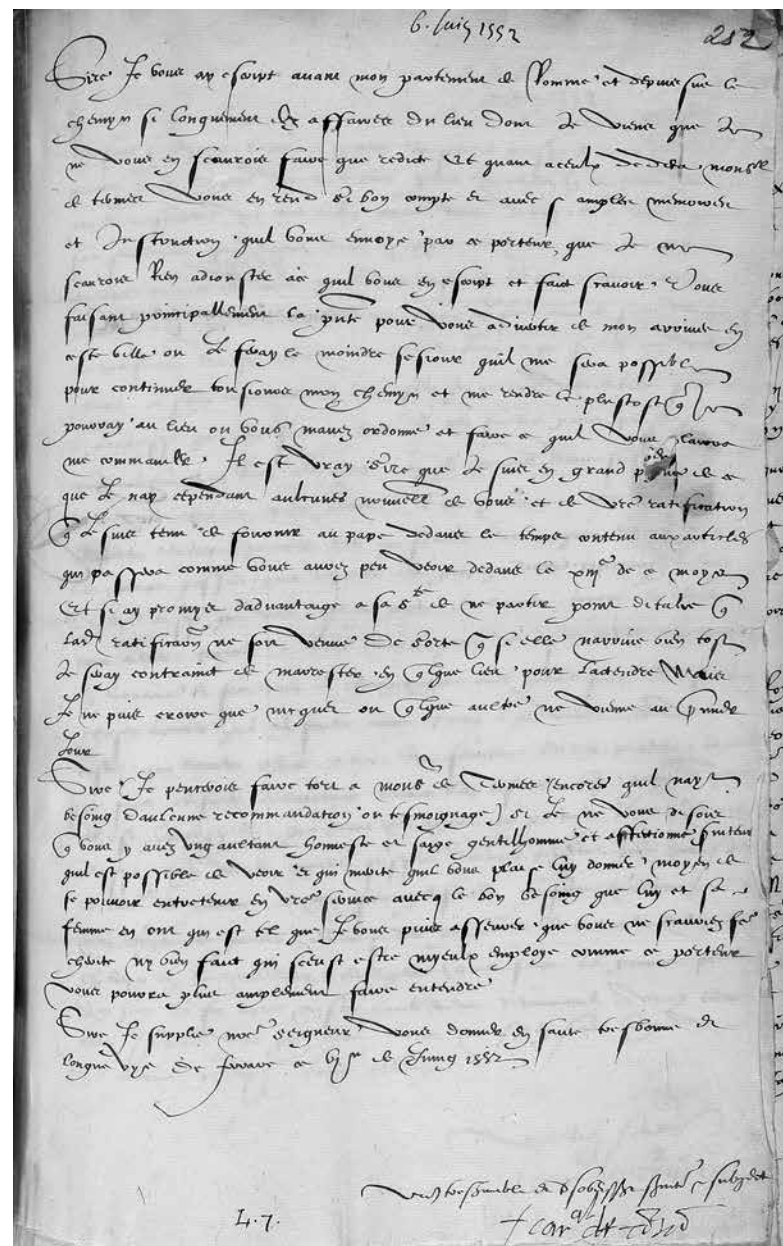 6. Juing 1552
212
Sire Je vous ay escript avant mon partement de Romme et depuis sur le
chemyn si longuement des affaires du lieu dont Je viens que Je
ne vous en scaurois faire que redicte Et quant a ceulx de deça monsr
de termes vous en rend si bon compte et avec si amples memoires
et Instruction quil vous envoye par ce porteur que Je ne
scaurois Rien adiouster a ce quil vous en escript et faict scavoir Vous
faisant principallement la pnte pour vous advertir de mon arrivee en
ceste ville ou Je feray le moindre seiour quil me sera possible
pour continuer tousiours mon chemyn et me rendre le plustost q Je
pourray au lieu ou vous mavez ordonne et faire ce quil vous plaira
me commander Il est vray Sire que Je suis en grand peine de ce
que Je nay cependant aulcunes nouvelles de vous et de vre ratification
q Je suis tenu de fournir au pape dedans le temps contenu aux articles
qui passera comme vous avez peu veoir dedans le xiiije de ce moys
Et si ay promys dadvantaige a sa Ste de ne partir point ditalye q
lad ratificaon ne soit venue De sorte q si elle narrive bien tost
Je seray contrainct de marrester en qlque lieu pour lactendre Mais
Je ne puis croire que nicquet ou qlque aultre ne vienne au premier
Jour
Sire Je penserois faire tort a monsr de Termes encores quil nayt
besoing daulcune recommandation ou tesmoignage si Je ne vous disois
q vous y avez ung aultant honneste et saige gentilhomme et affectionne sviteur
quil est possible de veoir et qui merite quil vous plaise luy donner moyen de
se pouvoir entretenir en vre service avecq le bon besoing que luy et sa
femme en ont qui est tel que Je vous puis asseurer que vous ne scauriez fe
cherite ny bien faict qui sceust estre myeulx employe comme ce porteur
vous pourra plus amplement faire entendre
Sire Je supplie nre seigneur vous donner en sante tresbonne et
longue vye De ferrare ce vje de Juing 1552
Vre treshumble et tsobeissant sviter et subgect
f car al de
L.7.